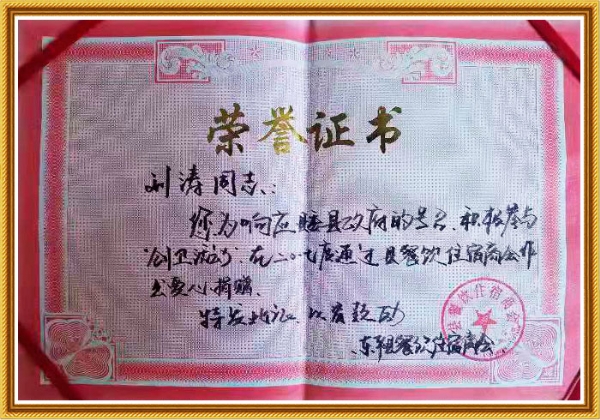 荣誉证书
刘涛同志:
您为响应睢县政府的号召、积极参与
"创卫活动",在二〇一七年通过县餐饮住宿商会作
出爱心捐赠。
特发此证、以资鼓励
县餐饮住宿商会
餐饮住宿商会